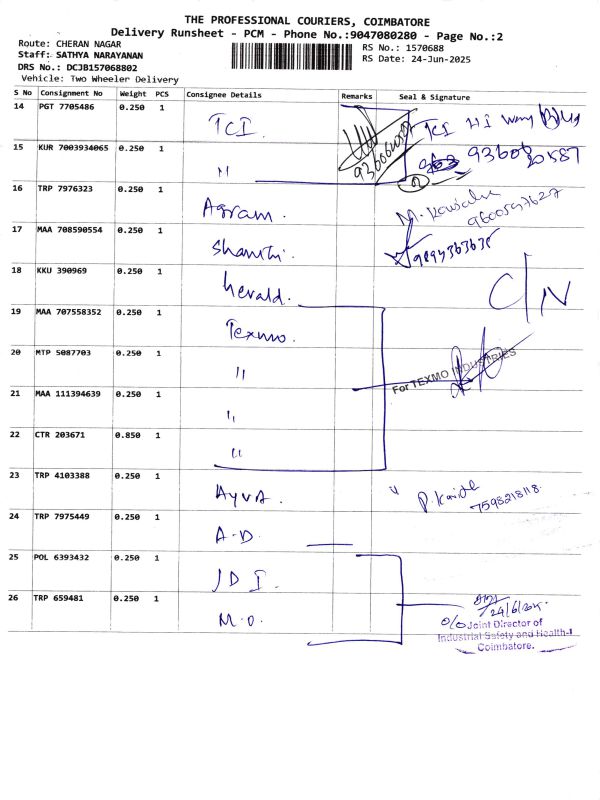 THE PROFESSIONAL COURIERS, COIMBATORE
Delivery Runsheet - PCM - Phone No.:9047080280 - Page No.:2
Route: CHERAN NAGAR
Staff: SATHYA NARAYANAN
DRS No.: DCJB157068802
Vehicle: Two Wheeler Delivery
RS No.: 1570688
RS Date: 24-Jun-2025
S No Consignment No Weight PCS Consignee Details Remarks Seal & Signature
14 PGT 7705486 0.250 1 TCI TCI HI Way
15 KUR 7003934065 0.250 1 " 93606 20587
16 TRP 7976323 0.250 1 Agram. M. 9600597627
17 MAA 708590554 0.250 1 Shanthi.
18 KKU 390969 0.250 1 herald. C/N
19 MAA 707558352 0.250 1 Texmo.
20 MTP 5087703 0.250 1 "
For TEXMO INDUSTRIES
21 MAA 111394639 0.250 1 "
22 CTR 203671 0.850 1 "
23 TRP 4103388 0.250 1 Ayva. P. 7598218118.
24 TRP 7975449 0.250 1 A-D.
25 POL 6393432 0.250 1 JDI.
26 TRP 659481 0.250 1 M.O.
24/6/2025.
O/O Joint Director of
Industrial Safety and Health-I
Coimbatore.